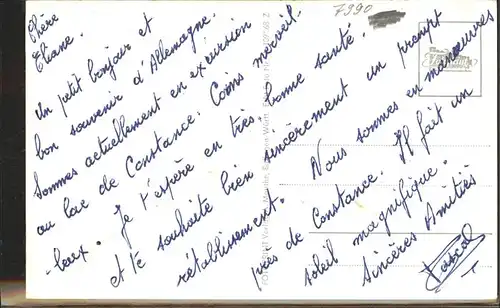 7990
Chère
Eliane.
Un petit bonjour et
bon souvenir d'Allemagne.
Sommes actuellement en excursion
au lac de Constance. Coins merveil-
leux. Je t'espère en très bonne santé.
et te souhaite bien sincèrement un prompt
rétablissement. Nous sommes en manœuvres
près de Constance. Il fait un
soleil magnifique.
Sincères Amitiés
Pascal